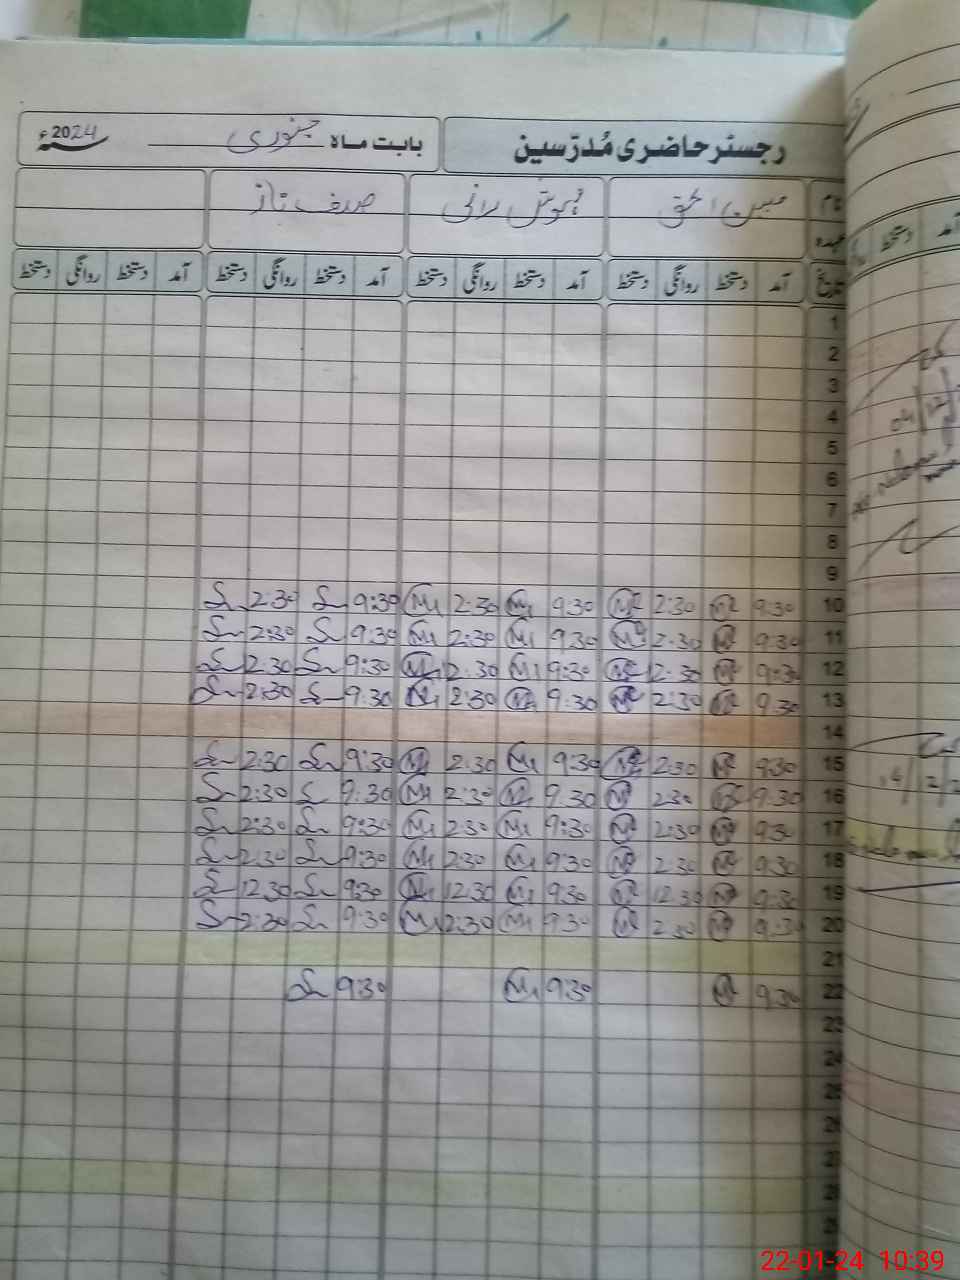 رجسٹر حاضری مُدرّسین بابت ماہ جنوری 2024ء
نام مبین الحق مہوش رانی صدف ناز
عہدہ
تاریخ آمد دستخط روانگی دستخط آمد دستخط روانگی دستخط آمد دستخط روانگی دستخط آمد دستخط روانگی دستخط
1
2
3
4
5
6
7
8
9
10 9:30 2:30 9:30 2:30 9:30 2:30
11 9:30 2:30 9:30 2:30 9:30 2:30
12 9:30 2:30 9:30 2:30 9:30 2:30
13 9:30 2:30 9:30 2:30 9:30 2:30
14
15 9:30 2:30 9:30 2:30 9:30 2:30
16 9:30 2:30 9:30 2:30 9:30 2:30
17 9:30 2:30 9:30 2:30 9:30 2:30
18 9:30 2:30 9:30 2:30 9:30 2:30
19 9:30 12:30 9:30 12:30 9:30 12:30
20 9:30 2:30 9:30 2:30 9:30 2:30
21
22 9:30 9:30 9:30
23
24
25
26
27
28
22-01-24 10:39